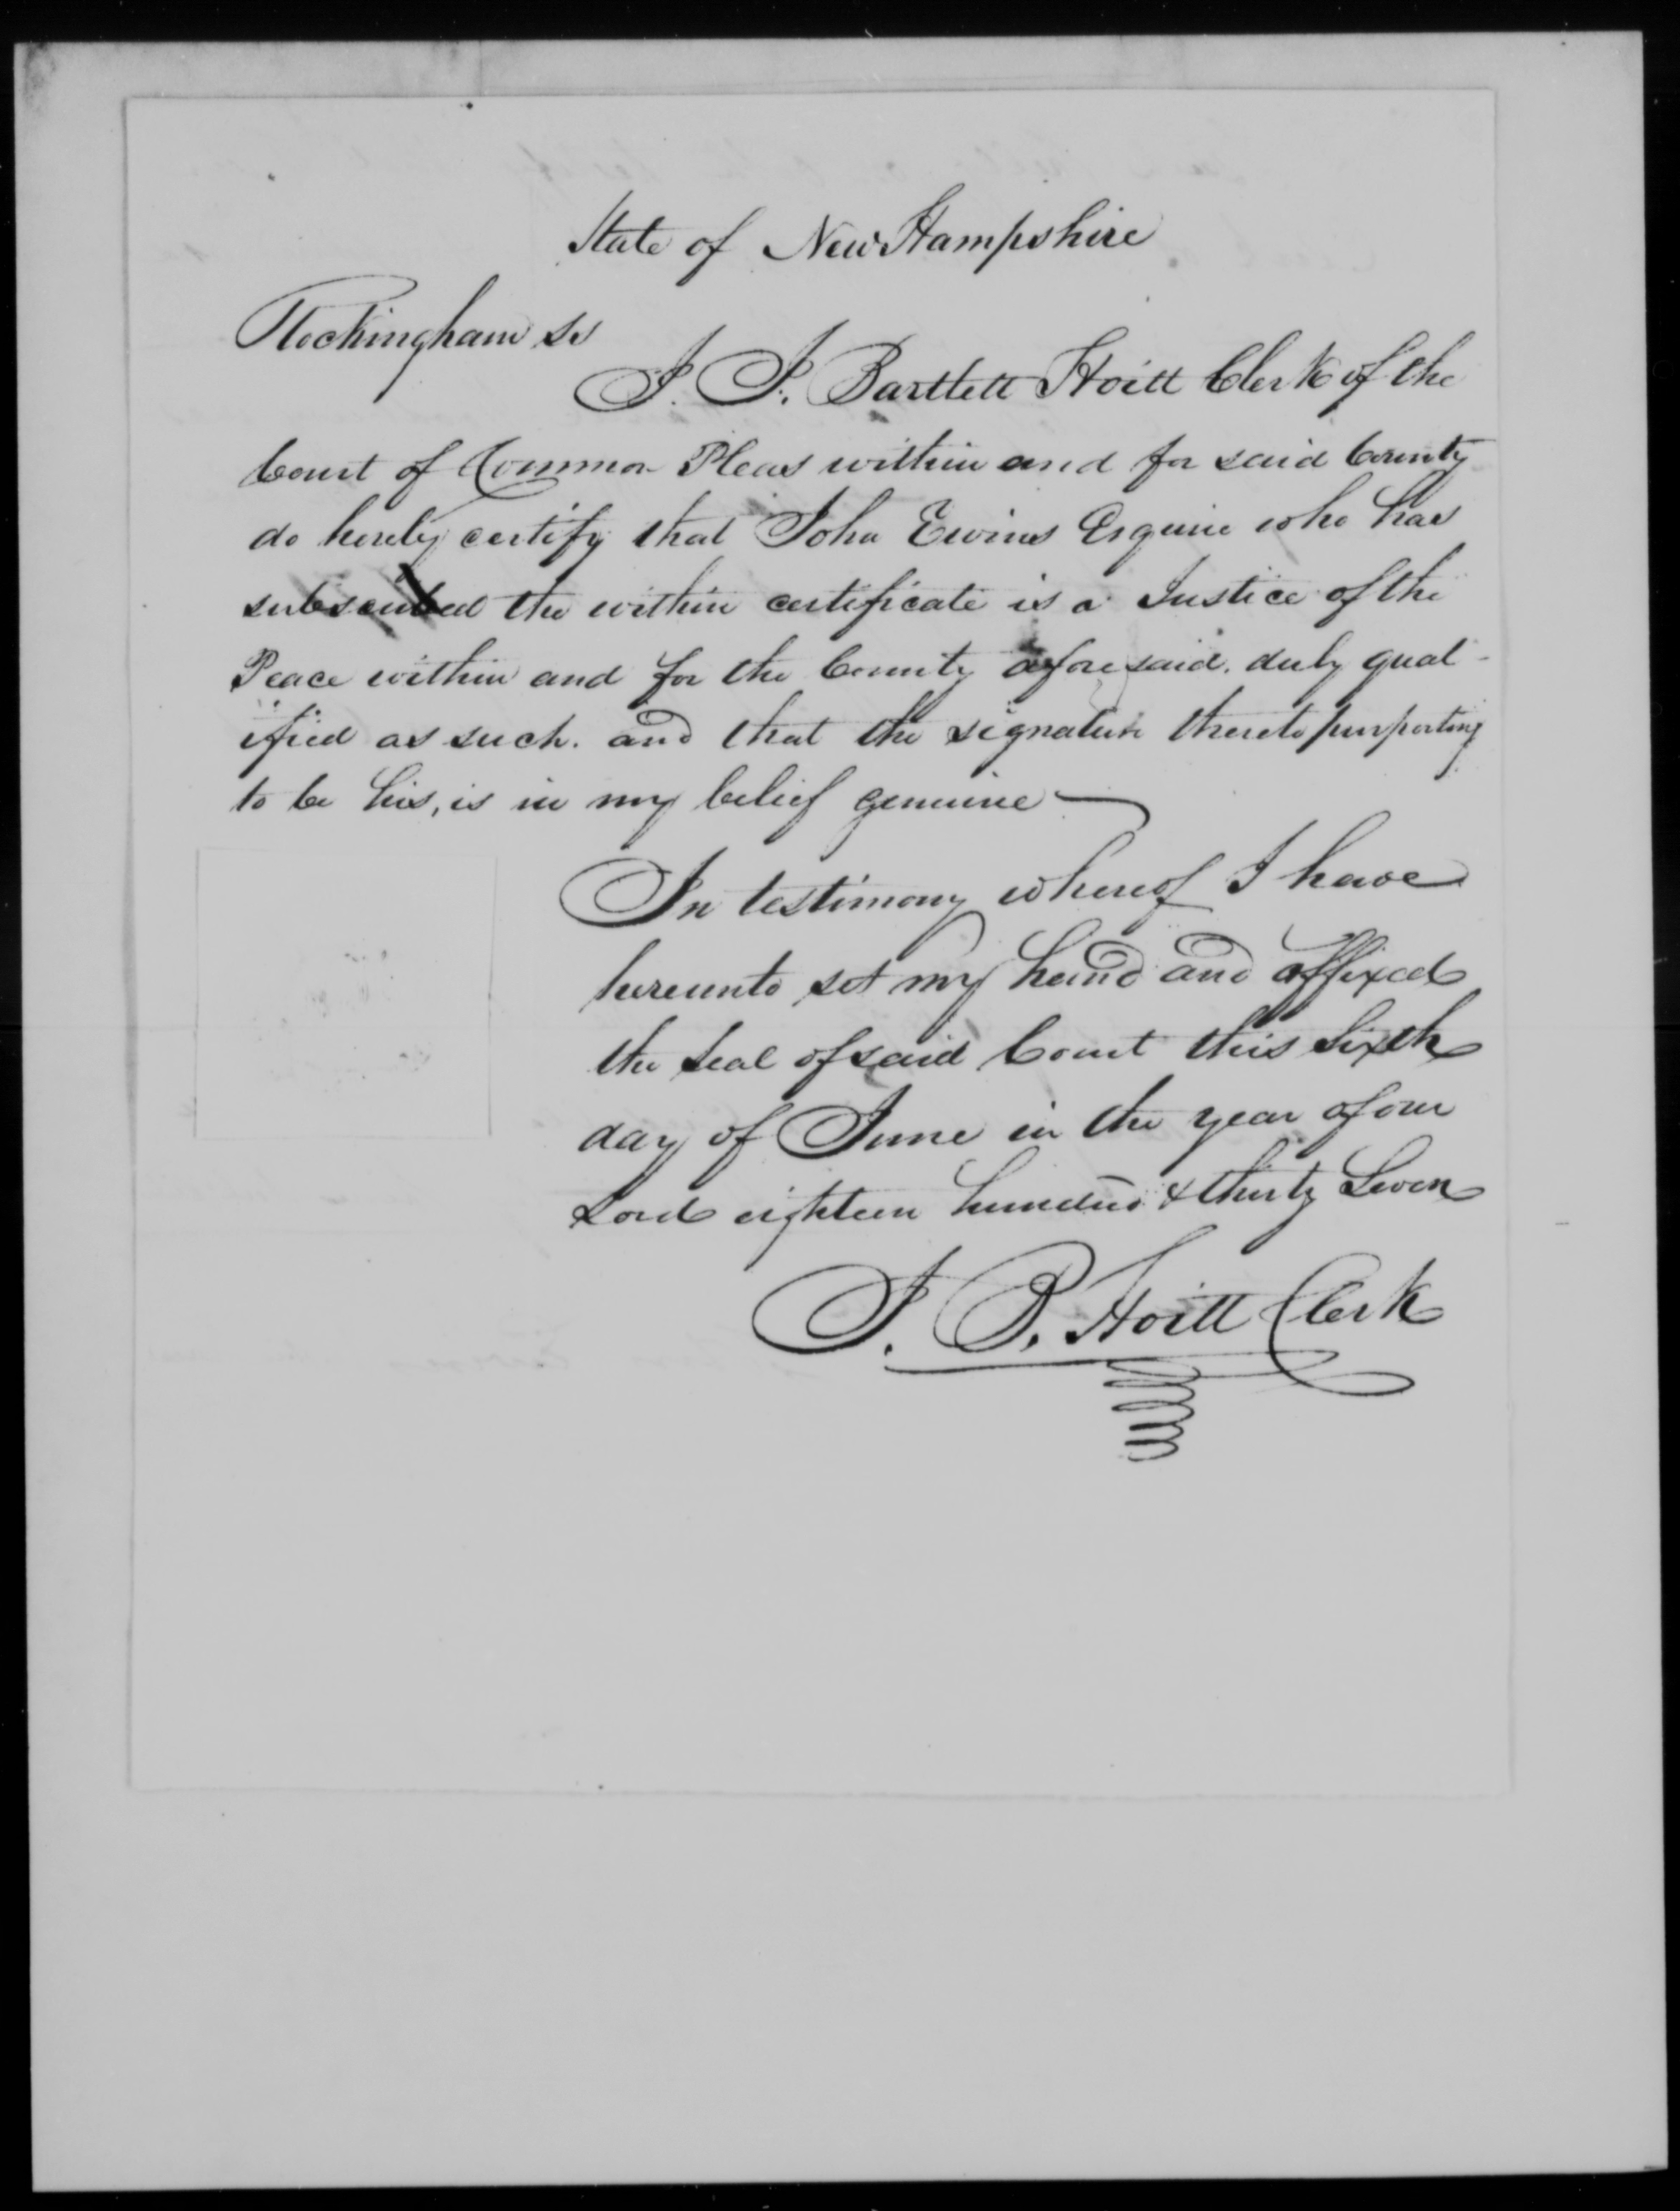 State of New Hampshire
Rockingham ss
I. I. Bartlett Hoitt Clerk of the
Court of Common Pleas within and for said County
do hereby certify that John Ewins Esquire who has
subscribed the within certificate is a Justice of the
Peace within and for the County aforesaid. duly qual-
ified as such. and that the signature thereto purporting
to be his, is in my belief genuine
In testimony whereof I have
hereunto set my hand and affixed
the Seal of said Court this Sixth
day of June in the year of our
Lord eighteen hundred & thirty Seven
I. B. Hoitt Clerk